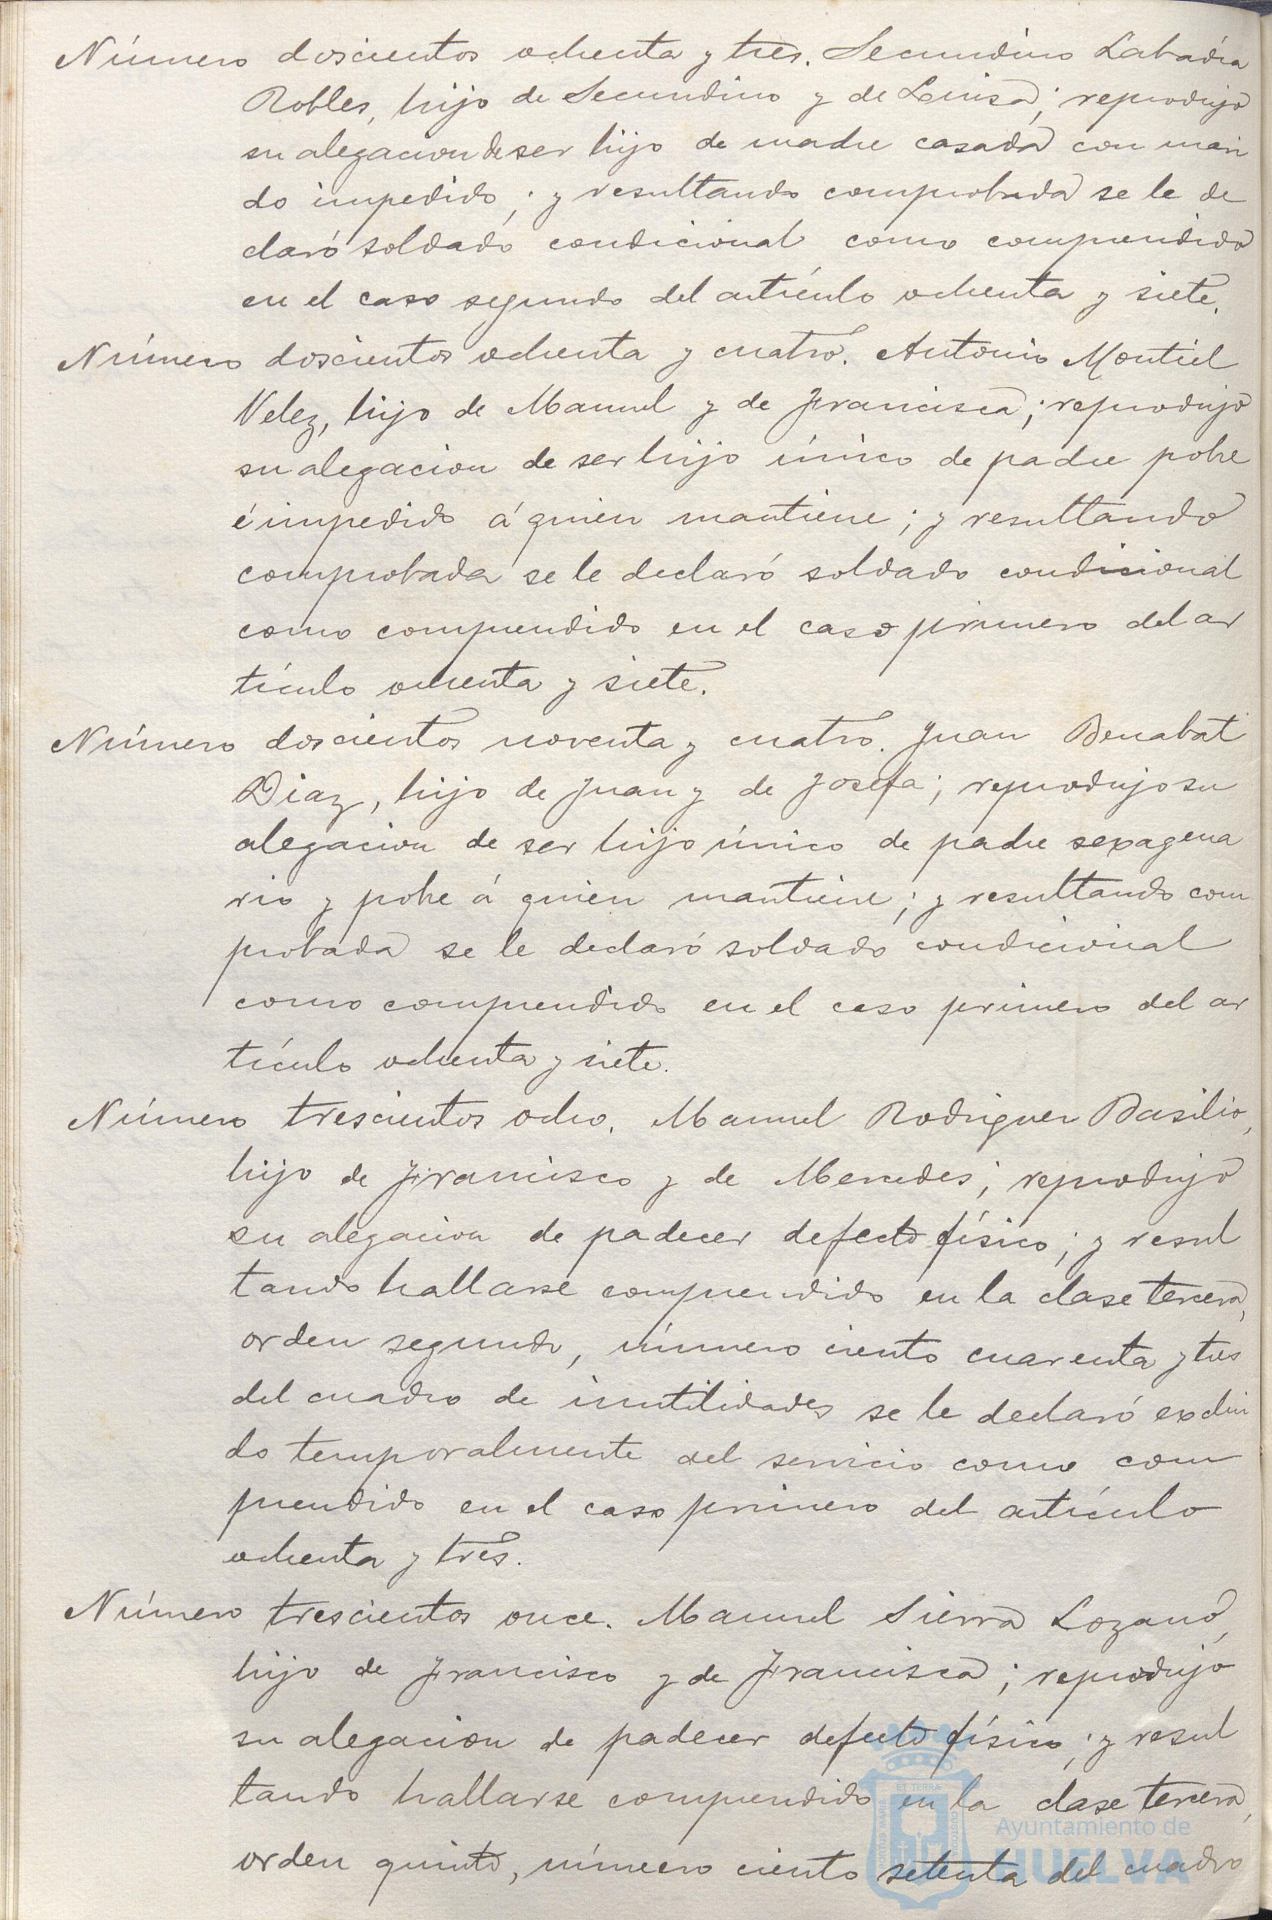 Número doscientos ochenta y tres. Secundino Labadía
Robles, hijo de Secundino y de Luisa; reprodujo
su alegacion de ser hijo de madre casada con mari
do impedido; y resultando comprobada se le de
claró soldado condicional como comprendido
en el caso segundo del artículo ochenta y siete.
Número doscientos ochenta y cuatro. Antonio Montiel
Velez, hijo de Manuel y de Francisca; reprodujo
su alegacion de ser hijo único de padre pobre
é impedido á quien mantiene; y resultando
comprobada se le declaró soldado condicional
como comprendido en el caso primero del ar
tículo ochenta y siete.
Número doscientos noventa y cuatro. Juan Benabat
Diaz, hijo de Juan y de Josefa; reprodujo su
alegacion de ser hijo único de padre sexagena
rio y pobre á quien mantiene; y resultando com
probada se le declaró soldado condicional
como comprendido en el caso primero del ar
tículo ochenta y siete.
Número trescientos ocho. Manuel Rodriguez Basilio,
hijo de Francisco y de Mercedes; reprodujo
su alegacion de padecer defecto físico; y resul
tando hallarse comprendido en la clase tercera,
orden segundo, número ciento cuarenta y tres
del cuadro de inutilidades se le declaró exclui
do temporalmente del servicio como com
prendido en el caso primero del artículo
ochenta y tres.
Número trescientos once. Manuel Sierra Lozano,
hijo de Francisco y de Francisca; reprodujo
su alegacion de padecer defecto físico; y resul
tando hallarse comprendido en la clase tercera,
orden quinto, número ciento setenta del cuadro
Ayuntamiento de
HUELVA